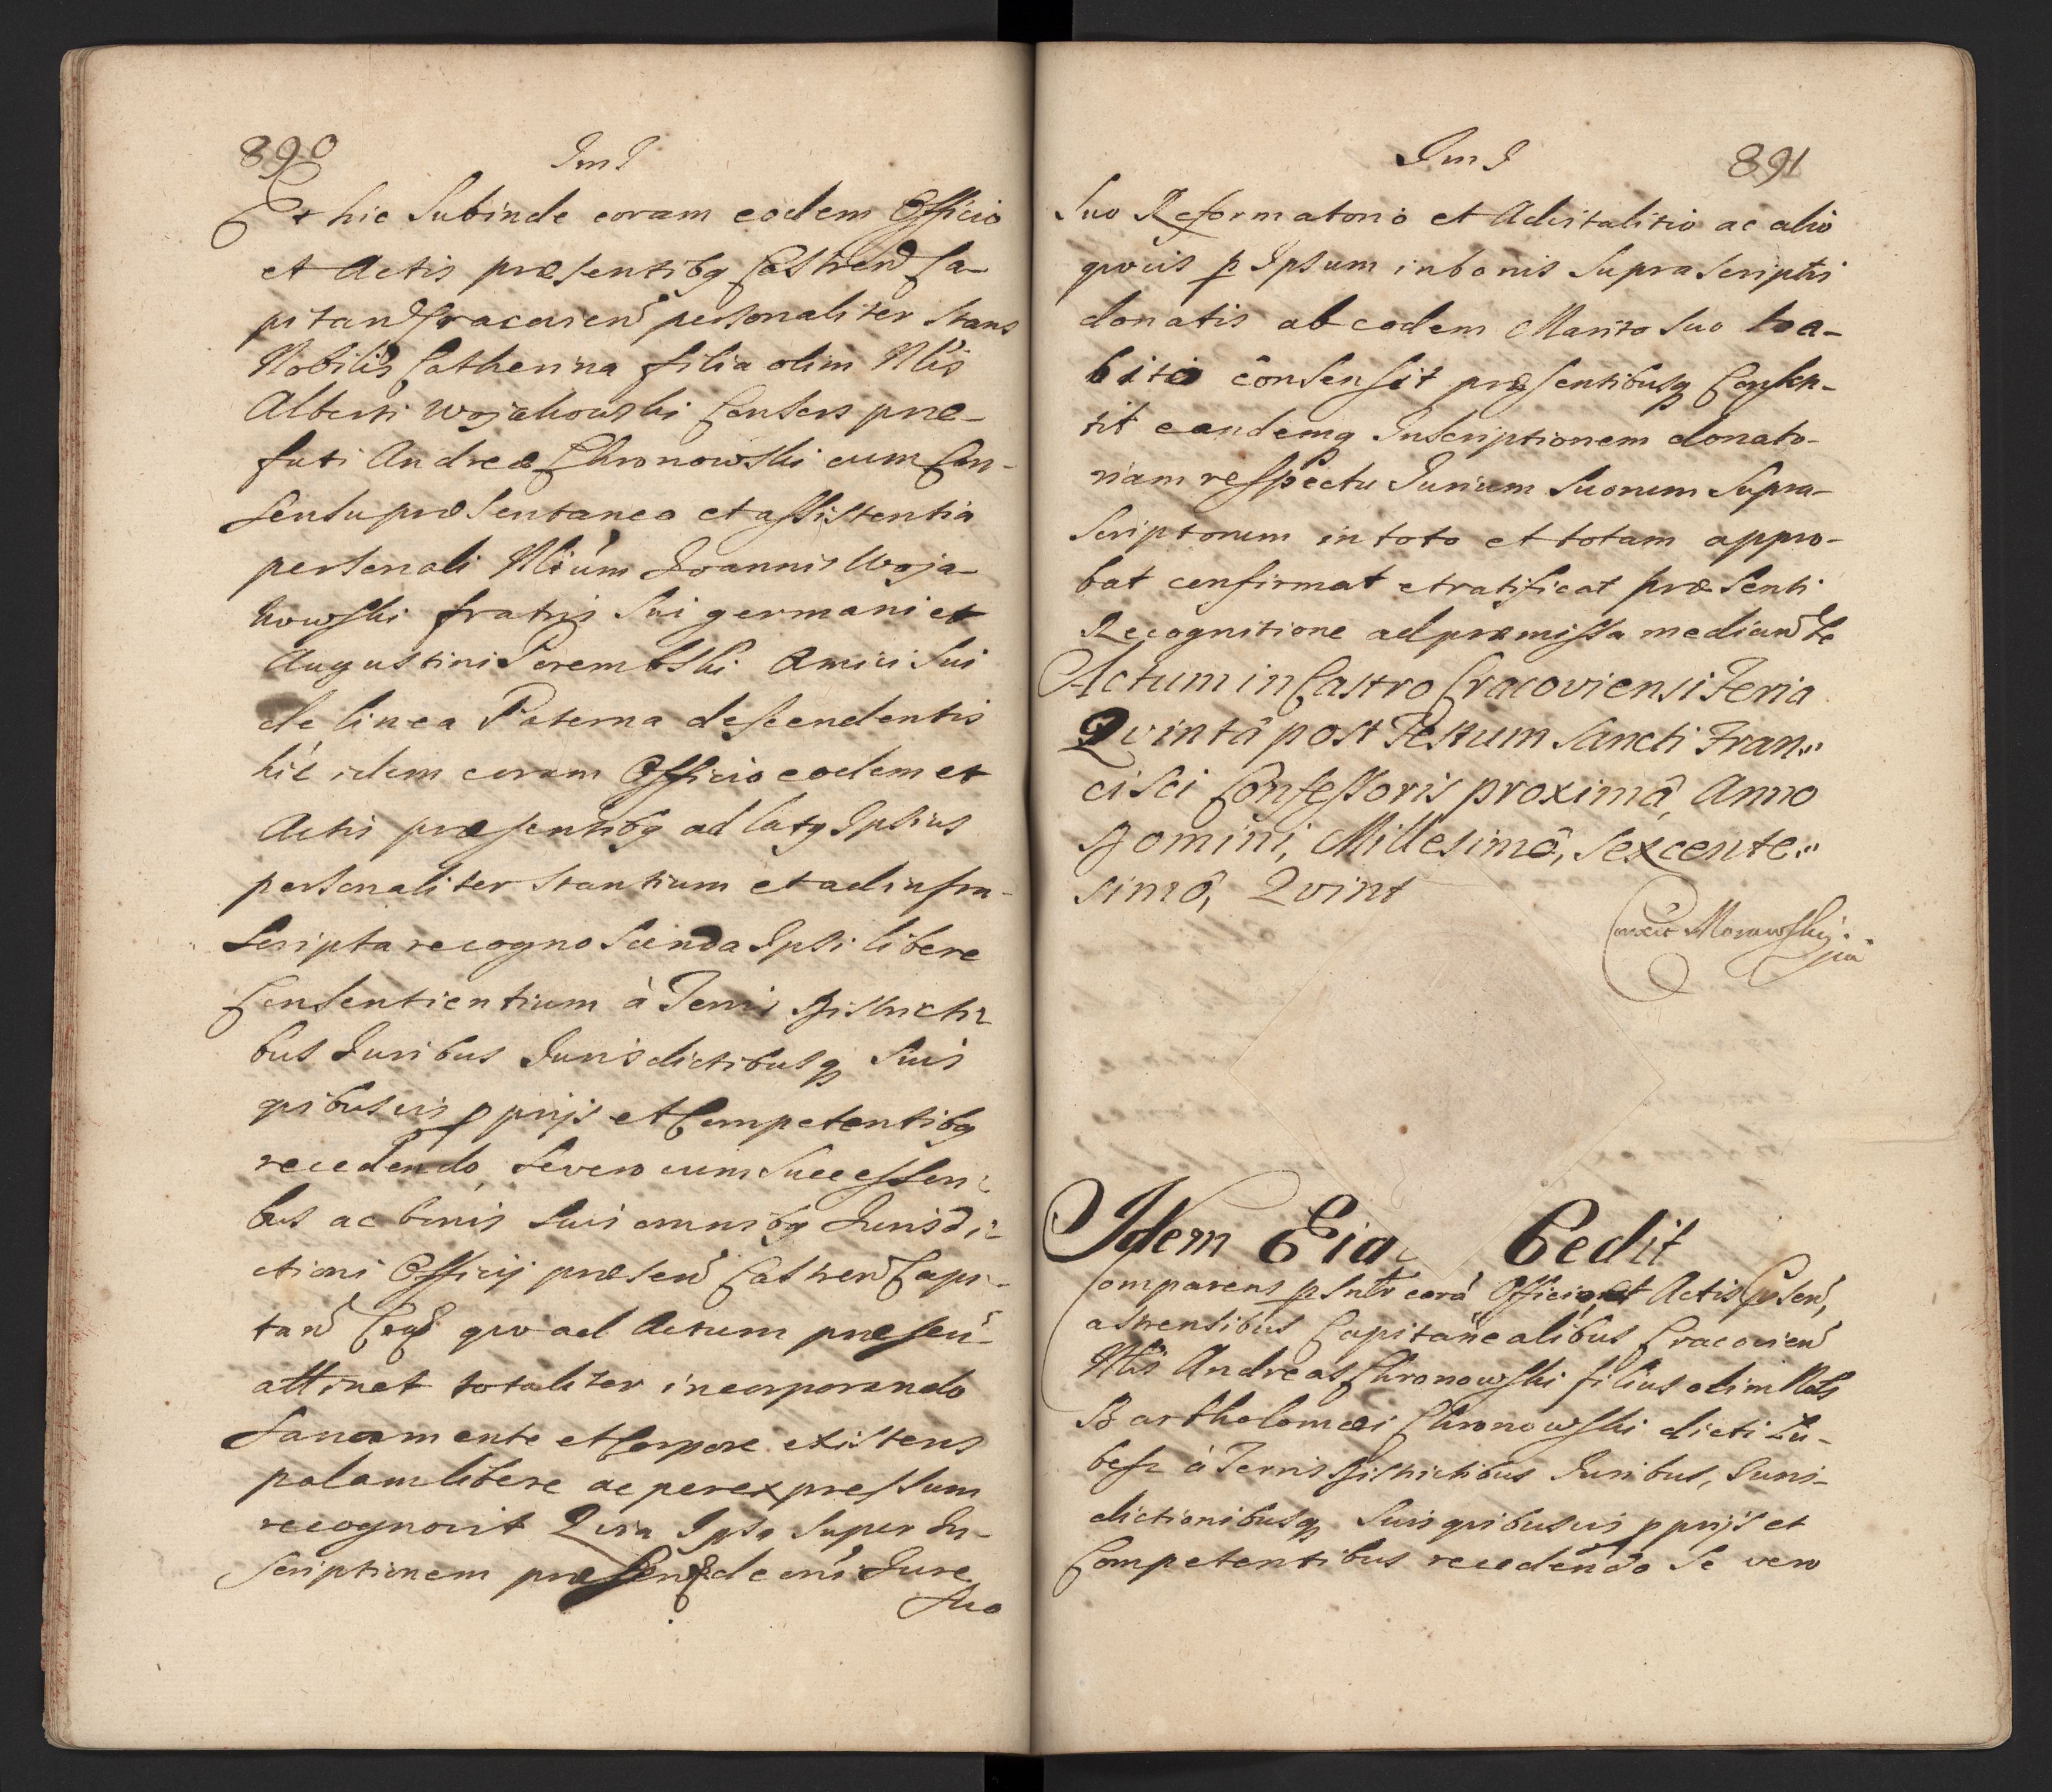 890
ImJ
Et hic Subinde coram eodem Officio
et Actis præsentibq Castren Ca-
pitan Cracovien personaliter stans
Nobilis Catherina filia olim Nlis
Alberti Wojakowski Consors præ-
fati Andreæ Chronowski cum Con-
sensu præsentaneo et assistentia
personali Nlium Joannis Woja-
kowski fratris sui germani et
Augustini Porembski Amici sui
de linea Paterna descendentis
hic idem coram Officio eodem et
Actis præsentibq ad latq Ipsius
personaliter stantium et ad infra-
scripta recognoscenda Ipsi libere
Consentientium à Terris Districti-
bus Juribus Jurisdictibusq suis
quibusvis pprijs et Competentibq
recedendo, se vero cum Successori-
bus ac bonis suis omnibq Jurisdi-
ctioni Officij præsen Castren Capi-
tan Crac quo ad Actum præsen
attinet totaliter incorporando
sana mente et Corpore existens
palam libere ac per expressum
recognovit Quia Ipsa super In-
scriptionem præsen de omi Jure
suo
ImJ
891
suo Reformatorio et Advitalitio ac alio
quovis p Ipsum in bonis suprascriptis
donatis ab eodem Marito suo ha-
bito consensit præsentibusq Consen-
tit eandemq Inscriptionem donato-
riam respectu Jurium suorum supra-
scriptorum in toto et totam appro-
bat confirmat et ratificat præsenti
Recognitione ad præmissa mediante
Actum in Castro Cracoviensi Feria
Qvintâ post Festum Sancti Fran-
cisci Confessoris proximâ, Anno
Domini, Millesimô, Sexcente-
simô, Qvint
Morowski
Idem Eid Cedit
Comparens pslntr corà Officio et Actis psen,
astrensibus Capitanealibus Cracovien
Nlis Andreas Chronowski filius olim Nlis
Bartholomæi Chronowski dicti Lu-
besz à Terris Districtibus Juribus, Juris-
dictionibusq suis quibusvis pprijs et
Competentibus recedendo se vero